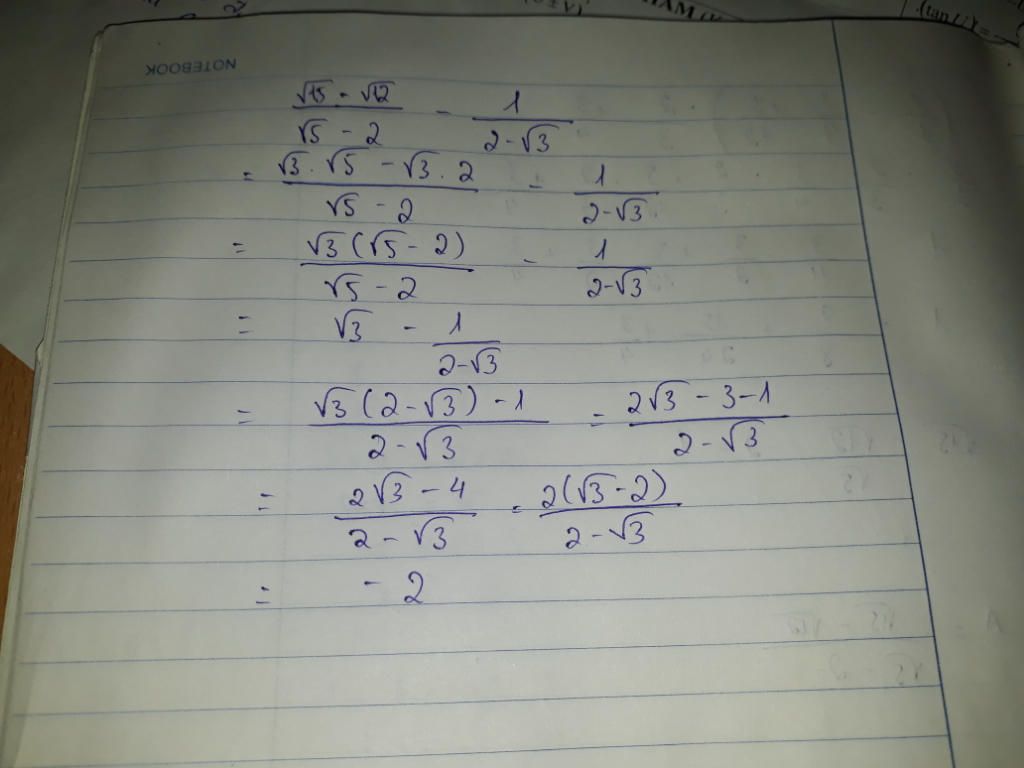 NOTEBOOK
(√15 - √12)/(√5 - 2) - 1/(2-√3)
= (√3 . √5 - √3 . 2)/(√5 - 2) - 1/(2-√3)
= (√3(√5 - 2))/(√5 - 2) - 1/(2-√3)
= √3 - 1/(2-√3)
= (√3(2-√3) - 1)/(2-√3) = (2√3 - 3 - 1)/(2-√3)
= (2√3 - 4)/(2-√3) = (2(√3-2))/(2-√3)
= - 2